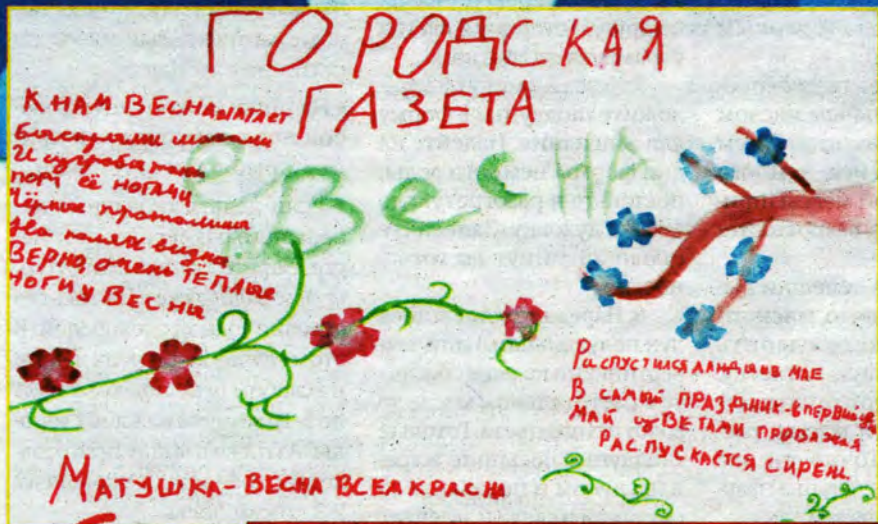 ГОРОДСКАЯ
ГАЗЕТА
К НАМ ВЕСНА ШАГАЕТ
Быстрыми шагами
И сугробы тают
ПОД ЕЁ НОГАМИ
Чёрные проталины
На полях видны
ВЕРНО, очень ТЁПЛЫЕ
НОГИ У ВЕСНЫ
ВеснА
РАСПУСТИЛСЯ ЛАНДЫШ В МАЕ
В САМЫЙ ПРАЗДНИК-В ПЕРВЫЙ
МАЙ цВЕТАМИ ПРОВОЖАЯ
РАСПУСКАЕТСЯ СИРЕНЬ
МАТУШКА-ВЕСНА ВСЕМ КРАСНА